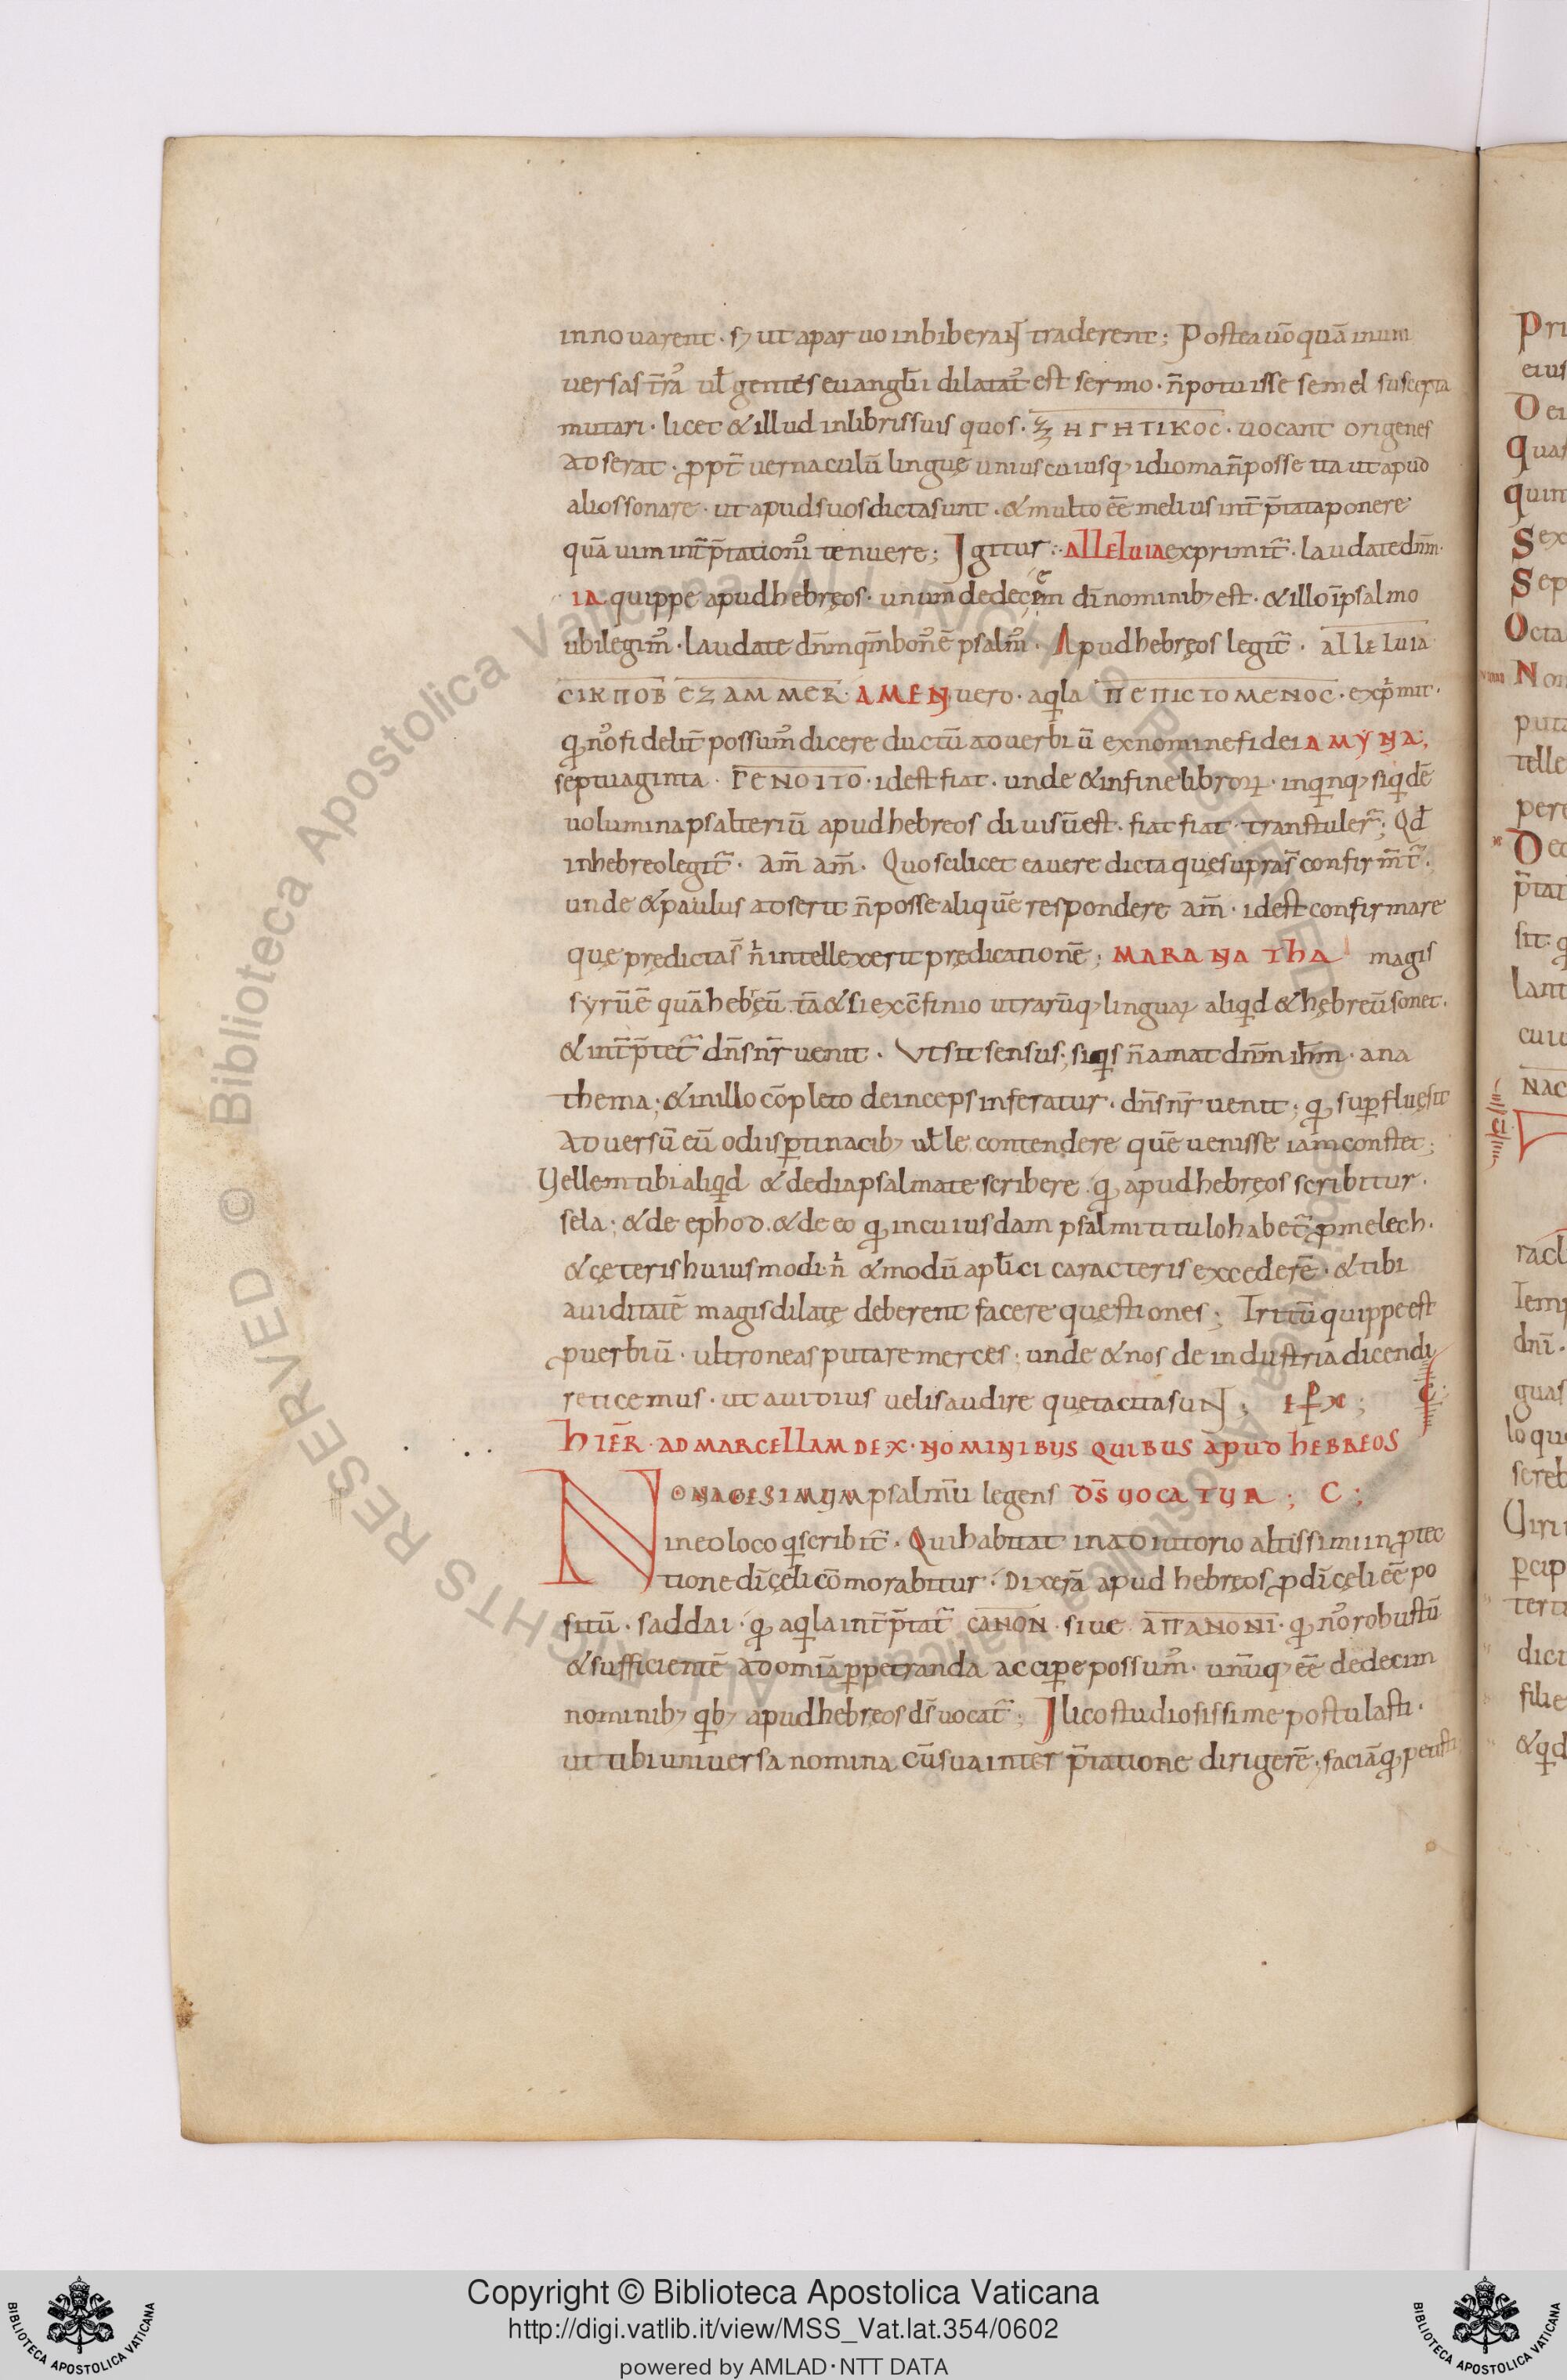 innovarent · sꝫ ut aparvo inbiberant traderent; Postea ū̄o quā inuni
versas tr̄a᷒ ul̄ gentes evangl̄ii dilatat᷒ est sermo · n̄ potuisse semel suscepta
mutari · licet & illud inlibris suis quos · ξΗΓΗΤΙΚΟC · vocant origenes
adserat · ꝓpt̄ vernaculū linguę unius cuiusqꝫ idioma n̄ posse ita ut apud
alios sonare · ut apud suos dicta sunt · & multo ēē melius int̄p̄tata ponere
quā vim int̄p̄tationū tenuere; Igitur · ALLELUIA exprimit̄ · laudate dn̄m ·
IA quippe apud hebręos · unum de decem dī nominibꝫ est · & illo ī psalmo
ubi legim᷒ · laudate dn̄m qm̄ bon᷒ ē psalm᷒ · Apud hebręos legit̄ · ALLELUIA
CIKΠOB EZAMMER · AMEN vero · aqla ΠEΠICTOMENOC · exp̄mit ·
qđ no᷒ fidelit̄ possum᷒ dicere ductū adverbiū ex nomine fidei AMYNA;
septuaginta · ΓENOITO · id est fiat · unde & in fine libroꝝ · inqnqꝫ siqdē
volumina psalteriū apud hebreos divisū est · fiat fiat · transtuler̄; Qđ
in hebreo legit̄ · am̄ am̄ · Quo scilicet ea vere dicta quę supra s̄ confirm̄t̄ ·
unde & paulus adserit n̄ posse aliquē respondere am̄ · id est confirmare
quę prędicta s̄ n̄ intellexerit prędicationē; MARANATHA magis
syrū ē quā hebręū · tā & si ex c̄finio utrarūqꝫ linguaꝝ aliqd & hębreū sonet ·
& int̄p̄tet̄ dn̄s nr̄ venit · Ut sit sensus; siqs n̄ amat dn̄m ih̄m · ana
thema; & in illo cōpleto deinceps inferatur · dn̄s nr̄ venit; qđ suꝑfluę sit
adversū eū odiis ꝑtinacibꝫ vel̄le contendere quē venisse iam constet;
Vellem tibi aliqd & de diapsalmate scribere · qđ apud hebręos scribitur ·
sela; & de ephod · & de eo qđ in cuiusdam psalmi titulo habet̄ ꝓ melech ·
& cęteris huiusmodi · n̄ & modū apl̄ici caracteris excederē · & tibi
aviditatē magis dilatę deberent facere quęstiones; Tritū quippe est
ꝓverbiū · ultroneas putare merces; unde & nos de industria dicendi
reticemus · ut avidius velis audire quę tacita sunt;
HIER̄ · AD MARCELLAM DE X · NOMINIBUS QUIBUS APUD HEBREOS
NONAGESIMUM psalmū legens D̄S VOCATUR; C;
in eo loco q scribit̄ · Qui habitat in adiutorio altissimi in ꝓtec
tione dī cęli cōmorabitur · Dixerā apud hebręos ꝓ dī cęli ēē po
situ̅ · saddai · qđ aqla int̄p̄tat̄ CANON · sive AΠANONI · qđ no᷒ robustū
& sufficientē ad omīa ꝑpetranda acciꝑe possum᷒ · unūqꝫ ēē de decim
nominibꝫ qbꝫ apud hebręos ds̄ vocat̄; Ilico studiosissime postulasti ·
ut tibi universa nomina cū sua interp̄tatione dirigerē · faciā qđ petisti
Copyright © Biblioteca Apostolica Vaticana
http://digi.vatlib.it/view/MSS_Vat.lat.354/0602
powered by AMLAD·NTT DATA